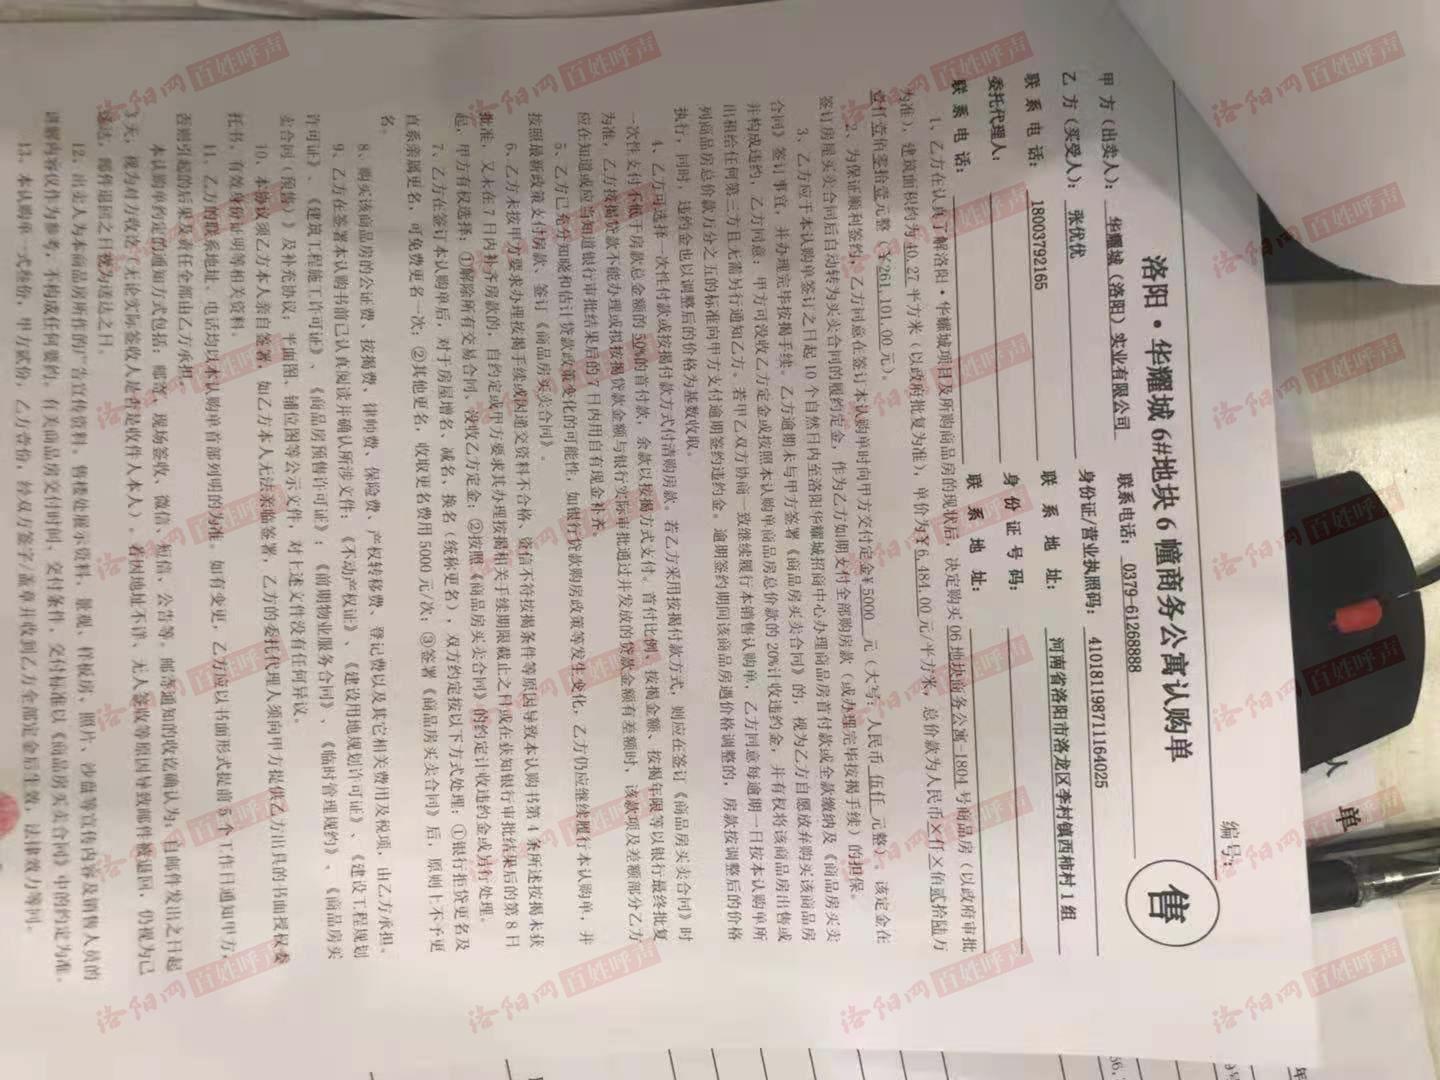 编号：
洛阳·华耀城 6#地块 6 幢商务公寓认购单
售
甲 方（出卖人）： 华耀城（洛阳）实业有限公司 联系电话： 0379-61268888
乙 方（买受人）： 张优优 身份证/营业执照码： 410181198711164025
联 系 电 话： 18003792165 联 系 地 址： 河南省洛阳市洛龙区李村镇西柿村 1 组
委托代理人： 身 份 证 号 码：
联 系 电 话： 联 系 地 址：
1、乙方在认真了解洛阳·华耀城项目及所购商品房的现状后，决定购买 06 地块商务公寓-1804 号商品房（以政府审批
为准），建筑面积约为 40.27 平方米（以政府批复为准），单价为¥ 6,484.00 元/平方米，总价款为人民币×仟×佰贰拾陆万
壹仟壹佰零拾壹元整（¥261,101.00 元）。
2、为保证顺利签约，乙方同意在签订本认购单时向甲方交付定金¥5000 元（大写：人民币 伍仟 元整）。该定金在
签订房屋买卖合同后自动转为买卖合同的履约定金，作为乙方如期支付全部购房款（或办理完毕按揭手续）的担保。
3、乙方应于本认购单签订之日起 10 个自然日内至洛阳华耀城招商中心办理商品房首付款或全款缴纳及《商品房买卖
合同》签订事宜，并办理完毕按揭手续。乙方逾期未与甲方签署《商品房买卖合同》的，视为乙方自愿放弃购买该商品房
并构成违约，乙方同意：甲方可没收乙方定金或按照本认购单商品房总价款的 20%计收违约金，并有权将该商品房出售或
出租给任何第三方且无需另行通知乙方。若甲乙双方协商一致继续履行本销售认购单，乙方同意每逾期一日按本认购单所
列商品房总价款万分之五的标准向甲方支付逾期签约违约金。逾期签约期间该商品房遇价格调整的，房款按调整后的价格
执行，同时，违约金也以调整后的价格为基数收取。
4、乙方可选择一次性付款或按揭付款方式付清购房款。若乙方采用按揭付款方式，则应在签订《商品房买卖合同》时
一次性支付不低于房款总金额的 50%的首付款，余款以按揭方式支付。首付比例、按揭金额、按揭年限等以银行最终批复
为准，乙方按揭贷款不能办理或拟按揭贷款金额与银行实际审批通过并发放的贷款金额有差额时，该款项及差额部分乙方
应在知道或应当知道银行审批结果后的 7 日内用自有现金补齐。
5、乙方已充分知晓和估计贷款政策变化的可能性，如银行贷款购房政策等发生变化，乙方仍应继续履行本认购单，并
按照最新政策支付房款、签订《商品房买卖合同》。
6、乙方未按甲方要求办理按揭手续或因递交资料不合格、资信不符按揭条件等原因导致本认购书第 4 条所述按揭未获
批准，又未在 7 日内补齐房款的，自约定或甲方要求其办理按揭相关手续期限截止之日或在获知银行审批结果后的第 8 日
起，甲方有权选择：①解除所有交易合同、没收乙方定金；②按照《商品房买卖合同》的约定计收违约金或另行处理。
7、乙方在签订本认购单后，对于房屋增名、减名、换名（统称更名），双方约定按以下方式处理：①银行拒贷更名及
直系亲属更名，可免费更名一次；②其他更名，收取更名费用 5000 元/次；③签署《商品房买卖合同》后，原则上不予更
名。
8、购买该商品房的公证费、按揭费、律师费、保险费、产权转移费、登记费以及其它相关费用及税项，由乙方承担。
9、乙方在签署本认购书前已认真阅读并确认所涉文件：《不动产权证》、《建设用地规划许可证》、《建设工程规划
许可证》、《建筑工程施工许可证》、《商品房预售许可证》；《前期物业服务合同》、《临时管理规约》、《商品房买
卖合同（预售）》及补充协议；平面图、铺位图等公示文件，对上述文件没有任何异议。
10、本协议须乙方本人亲自签署，如乙方本人无法亲临签署，乙方的委托代理人须向甲方提供乙方出具的书面授权委
托书、有效身份证明等相关资料。
11、乙方的联系地址、电话均以本认购单首部列明的为准。如有变更，乙方应以书面形式提前 5 个工作日通知甲方，
否则引起的后果及责任全部由乙方承担。
本认购单约定的通知方式包括：邮寄、现场签收、微信、短信、公告等。邮寄通知的收讫确认为：自邮件发出之日起
3 天，视为对方收讫（无论实际签收人是否是收件人本人）。若因地址不详、无人签收等原因导致邮件被退回，仍视为已
送达，邮件退回之日视为送达之日。
12、出卖人为本商品房所作的广告宣传资料、售楼处展示资料、景观、样板房、照片、沙盘等宣传内容及销售人员的
讲解内容仅作为参考，不构成任何要约。有关商品房交付时间、交付条件、交付标准以《商品房买卖合同》中的约定为准。
13、本认购单一式叁份，甲方贰份，乙方壹份，经双方签字/盖章并收到乙方全部定金后生效，法律效力等同。
人
单
洛阳网 百姓呼声